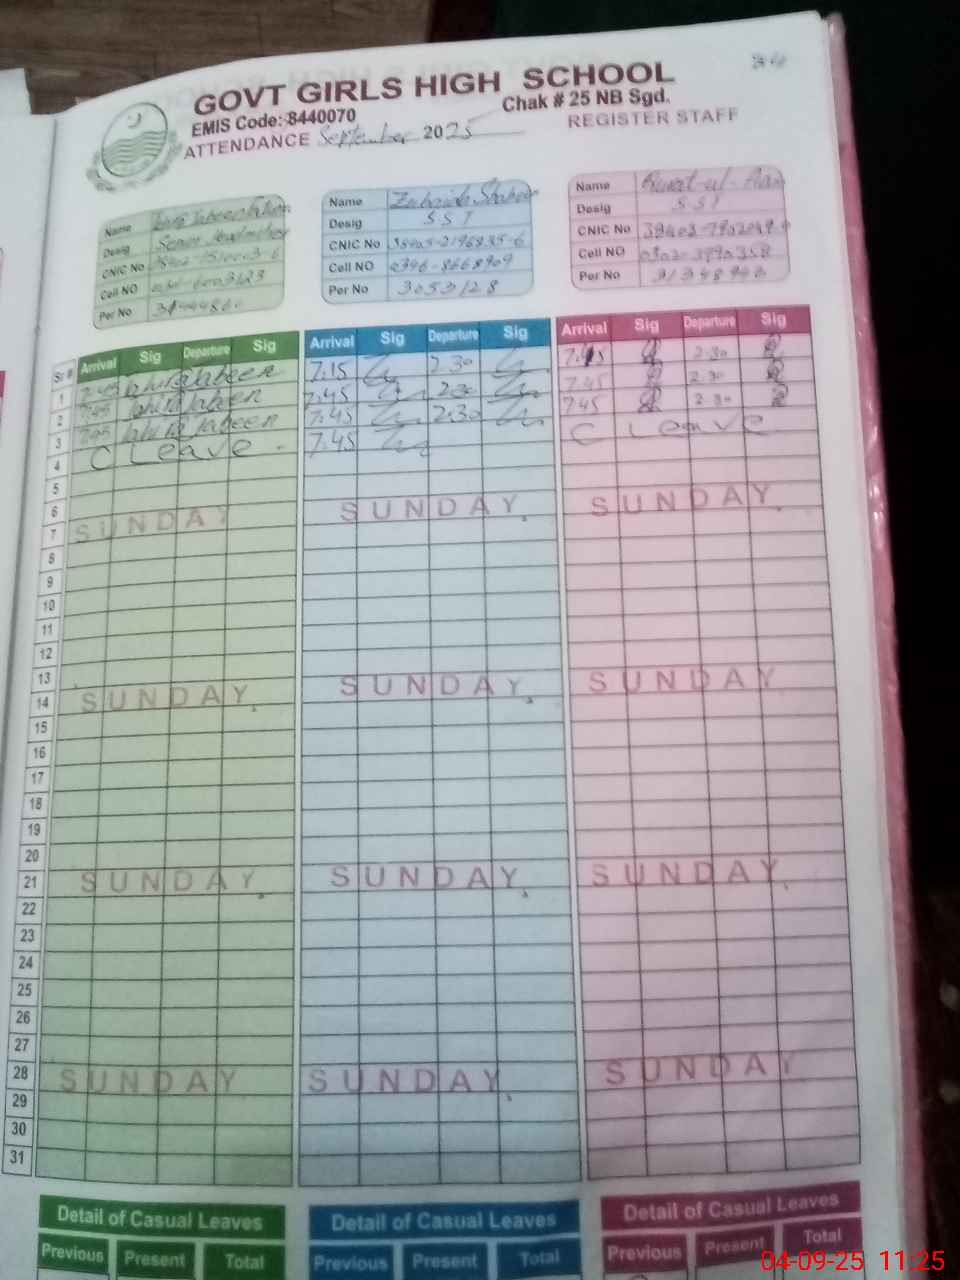 34
GOVT GIRLS HIGH SCHOOL
EMIS Code: 8440070
Chak # 25 NB Sgd.
ATTENDANCE September 2025
REGISTER STAFF
Name
Desig Senior Headmistress
CNIC No
Cell NO
Per No
Name Zubaida Shaheen
Desig SST
CNIC No 38403-2196835-6
Cell NO 0346-8668909
Per No 3053128
Name
Desig SST
CNIC No
Cell NO
Per No
Sr # Arrival Sig Departure Sig Arrival Sig Departure Sig Arrival Sig Departure Sig
1 7.45 7.15 2.30 7.45 2.30
2 7.45 7.45 2.30 7.45 2.30
3 7.45 7.45 2.30 7.45 2.30
4 C Leave. 7.45 C Leave
5
6
7 SUNDAY SUNDAY. SUNDAY.
8
9
10
11
12
13
14 SUNDAY. SUNDAY. SUNDAY
15
16
17
18
19
20
21 SUNDAY. SUNDAY. SUNDAY.
22
23
24
25
26
27
28 SUNDAY SUNDAY. SUNDAY
29
30
31
Detail of Casual Leaves Detail of Casual Leaves Detail of Casual Leaves
Previous Present Total Previous Present Total Previous Present Total
04-09-25 11:25